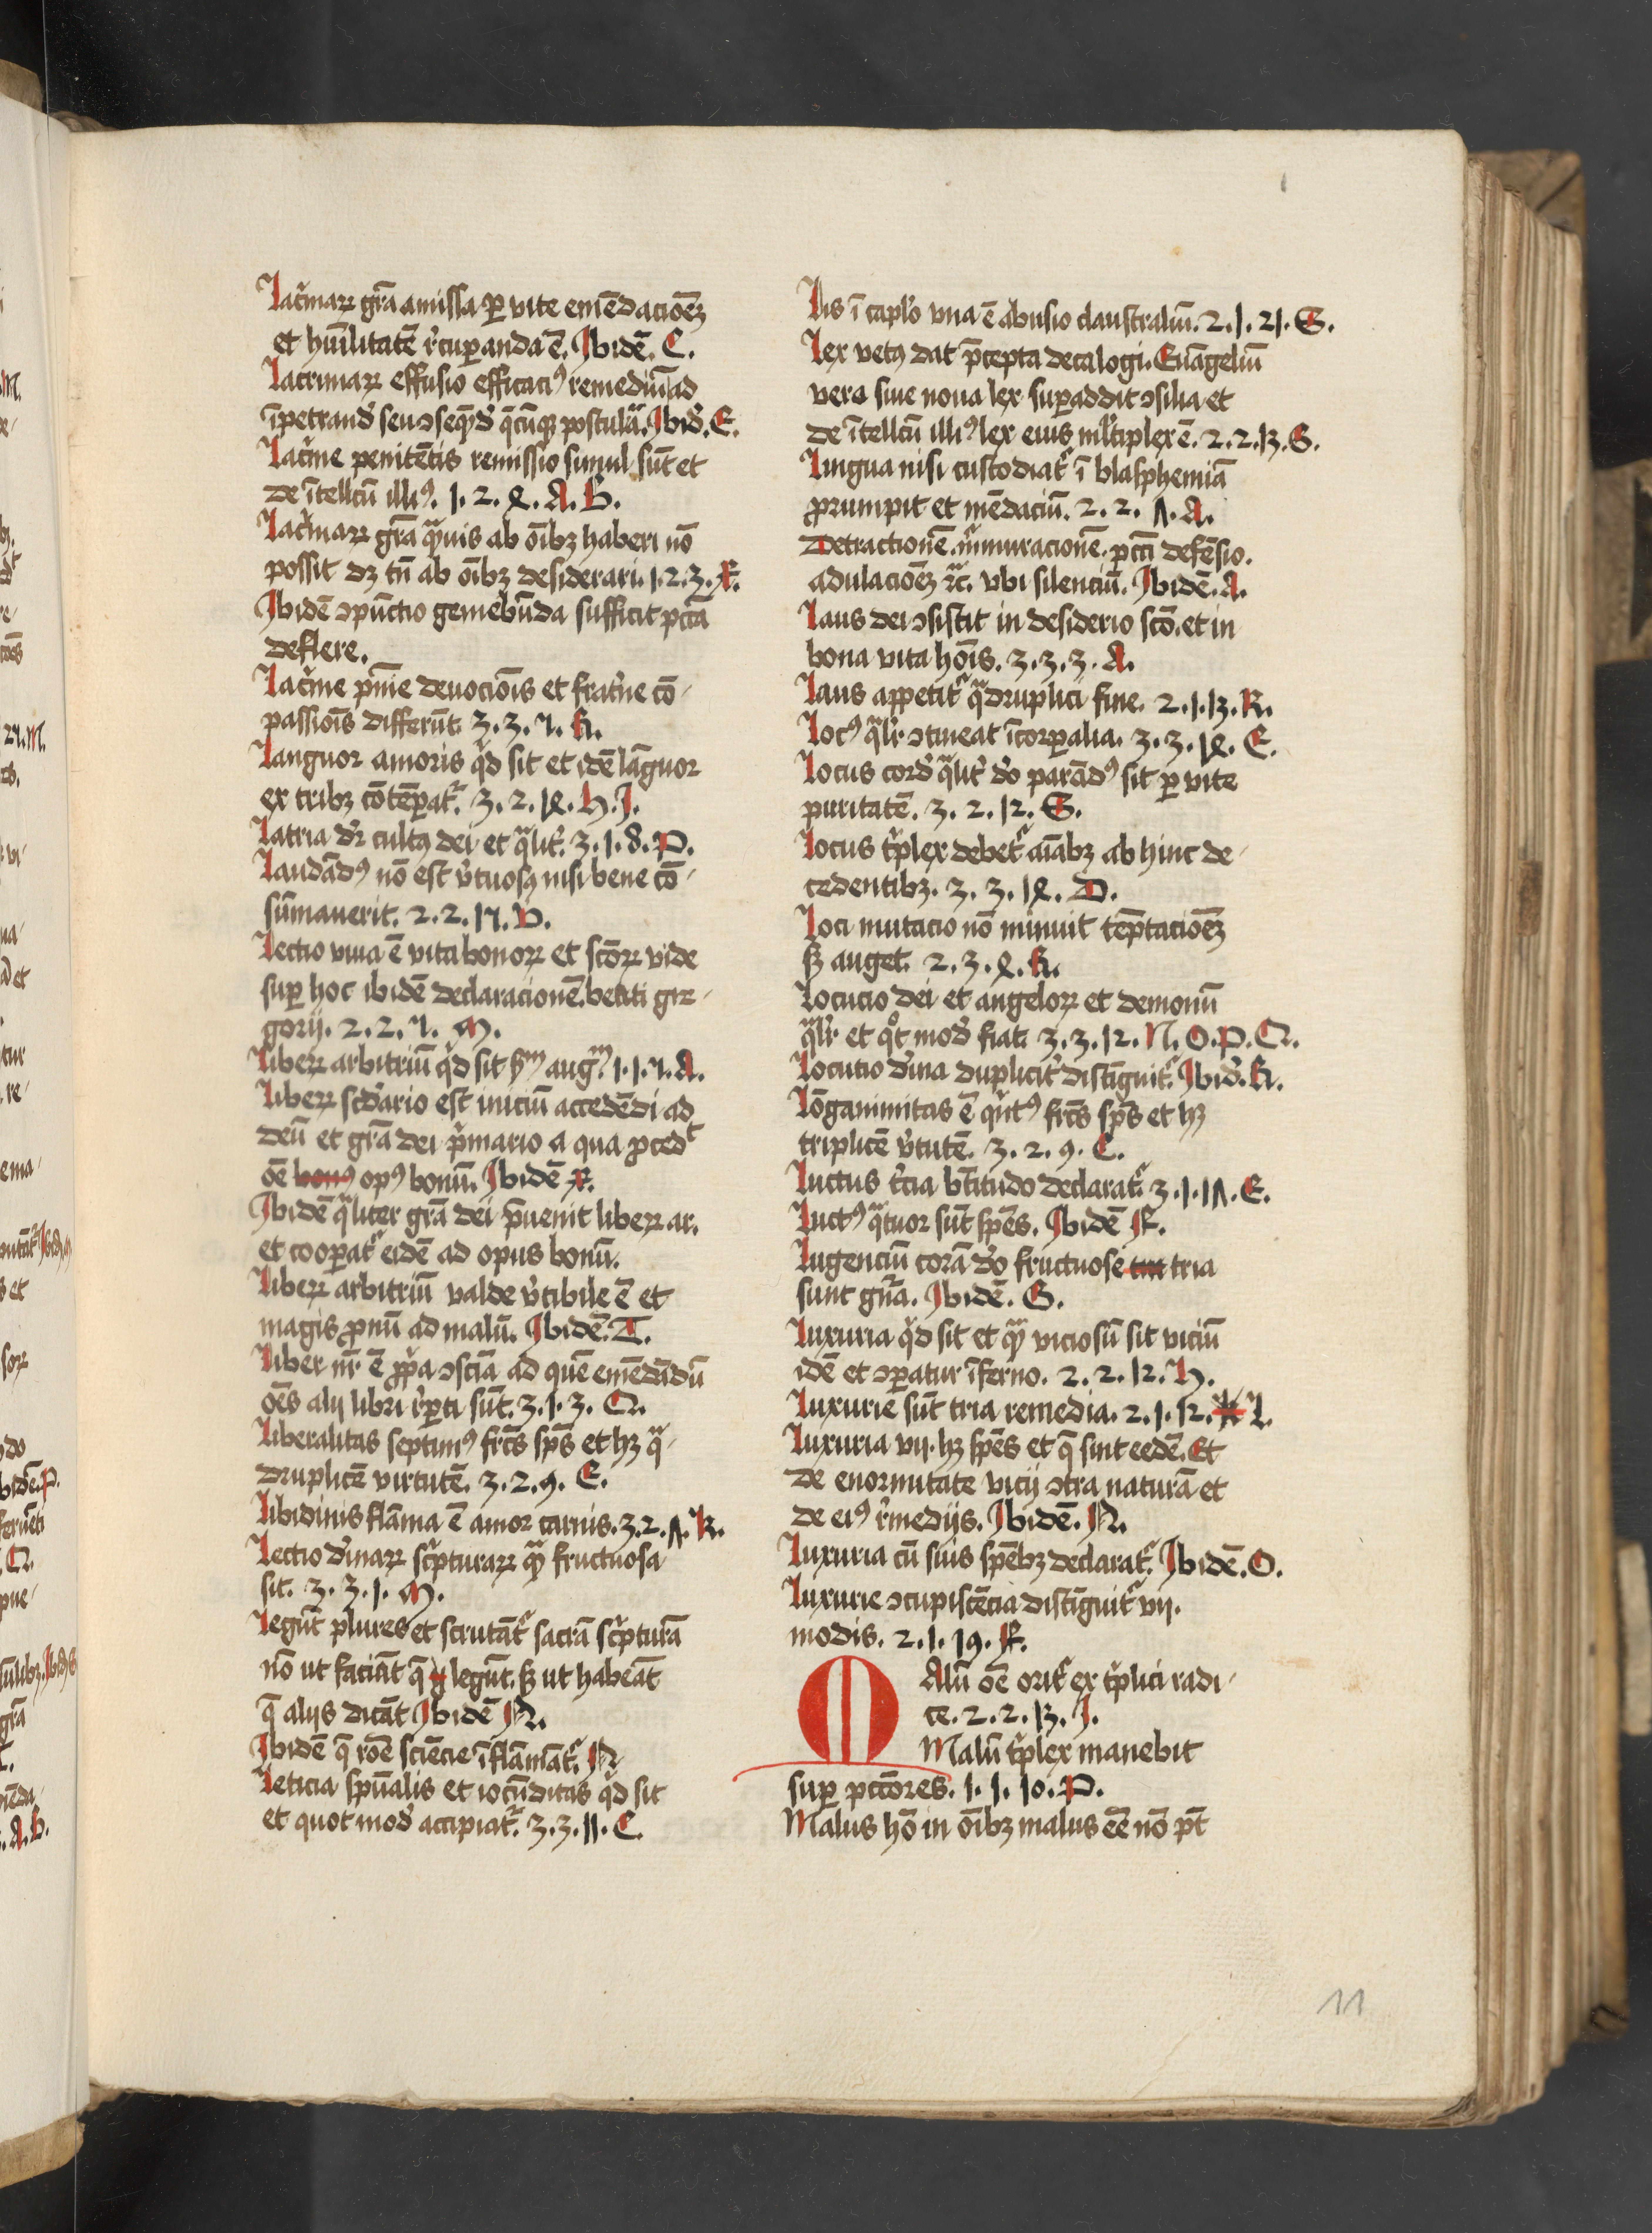 Lacͥmaꝝ grã amissa ꝑ vite emẽdacõeʒ
et hũilitatẽ rͨcuꝑanda ẽ. Ibidẽ. C.
Lacrimaꝝ effusio efficaciꝰ remediũ ad
ĩpetrand̾ seu ↄseqᷓd̾ q̃cũqꝫ postulaᷓ. Ibid̾. E.
Lacͥme penitẽtis remissio simul sũt et
de ĩtellcũ illiꝰ. 1. 2. 4. A. B.
Lacͥmaꝝ grã qᷓuis ab oĩbꝫ haberi nõ
possit dꝫ tñ ab oĩbꝫ desiderari. 1. 2. 3. F.
Ibidẽ ↄpũctio gemebũda sufficit pctã
deflere.
Lacͥme pͥmie deuociõis et frat̾ne cõ-
passiõis differũt. 3. 3. 7. K.
Languor amoris qͥd sit et idẽ lãguor
ex tribꝫ cõtẽꝑatᷣ. 3. 2. 14. H. I.
Latria dr̃ cultꝰ dei et qᷓlit̾. 3. 1. 8. P.
Laudãdꝰ nõ est v̾tuosꝰ nisi bene cõ-
sũmauerit. 2. 2. 17. V.
Lectio viua ẽ vita bonoꝝ et scõꝝ vide
suꝑ hoc ibidẽ declaracionẽ beati gre-
gorij. 2. 2. 7. M.
Libeꝝ arbitriũ qͥd sit ẜm augᷟ. 1. 1. 7. A.
Libeꝝ scd̾ario est iniciũ accedẽdi ad
deũ et grã dei pͥmario a qua ꝓcedᵗ
oẽ bonꝰ opꝰ bonũ. Ibidẽ F.
Ibidẽ qᷓliter grã dei p̃uenit libeꝝ ar.
et cooꝑatᷣ eidẽ ad opus bonũ.
Libeꝝ arbitriũ valde v̾tibile ẽ et
magis ꝓnũ ad malũ. Ibidẽ. T.
Liber nr̃ ẽ ꝓpͥa ↄsciã ad quẽ emẽdãdũ
oẽs alij libri r̾ꝑti sũt. 3. 1. 3. Q.
Liberalitas septimꝰ frc̃s sp̃s et hꝫ qᷓ-
druplicẽ virtutẽ. 3. 2. 9. E.
Libidinis flãma ẽ amor carnis. 3. 2. 5. R.
Lectio d̾inaꝝ scͥpturaꝝ qᷓ fructuosa
sit. 3. 3. 1. M.
Legũt plures et scrutãtᷣ sacrã scͥpturã
nõ ut faciãt q̃ legũt. sꝫ ut habeãt
q̃ alijs dicãt Ibidẽ N.
Ibidẽ q̃ roẽ sciẽcie ĩflãmãtᷣ. N
Leticia spũalis et iocũditas qͥd sit
et quot mod̾ accipiatᷣ. 3. 3. 11. C.
Lis ĩ caplo vna ẽ abusio claustraliũ. 2. 1. 21. G.
Lex vetꝰ dat p̃cepta decalogi. Euãgeliũ
vero siue noua lex suꝑaddit ↄsilia et
de ĩtellcũ illiꝰ lex eius ml̾tiplex ẽ. 2. 2. 13. G.
Lingua nisi custodiatᷣ ĩ blasphemiã
ꝓrumpit et mẽdaciũ. 2. 2. 5. A.
Detractionẽ. mͬmuracionẽ. pcc̃i defẽsio.
adulaciõeꝫ ꝛc̃. vbi silenciũ. Ibidẽ. A.
Laus dei ↄsistit in desiderio scõ. et in
bona vita hoĩs. 3. 3. 3. A.
Laus appetitᷣ qᷓdruplici fine. 2. 1. 13. R.
Locꝰ qᷓlr̾ ↄtineat ĩcorꝑalia. 3. 3. 14. E.
Locus cord̾ qᷓlit̾ d̾o parãdꝰ sit ꝑ vite
puritatẽ. 3. 2. 12. G.
Locus tͥplex debetᷣ aĩabꝫ ab hinc de-
cedentibꝫ. 3. 3. 14. D.
Loci mutacio nõ minuit tẽptaciõeꝫ
sꝫ auget. 2. 3. 4. K.
Locucio dei et angeloꝝ et demonũ
qᷓlr̾ et qͦt mod̾ fiat. 3. 3. 12. N. O. P. Q.
Locutio d̾ina duplicit̾ distĩguitᷣ. Ibid̾. K.
Lõganimitas ẽ qͥntꝰ frc̃s sp̃s et hꝫ
triplicẽ v̾tutẽ. 3. 2. 9. C.
Luctus t̾cia btĩtudo declaratᷣ. 3. 1. 15. E.
Luctꝰ qᷓtuor sũt sp̃es. Ibidẽ F.
Lugenciũ corã d̾o fructuose tria
sunt gñra. Ibidẽ. G.
Luxuria qͥd sit et qᷓ viciosũ sit viciũ
idẽ et ↄꝑatur ĩferno. 2. 2. 12. H.
Luxurie sũt tria remedia. 2. 1. 12. L.
Luxuria vij. hꝫ sp̃es et q̃ sint eedẽ. Et
de enormitate vicij ↄtra naturã et
de eiꝰ r̾medijs. Ibidẽ. N.
Luxuria cũ suis sp̃ebꝫ declaratᷣ. Ibidẽ. O.
Luxurie ↄcupiscẽcia distĩguitᷣ vij.
modis. 2. 1. 19. F.
MAlũ oẽ oritᷣ ex tͥplici radi-
ce. 2. 2. 13. I.
Malũ tͥplex manebit
suꝑ pctõres. 1. 1. 10. P.
Malus hõ in oĩbꝫ malus eẽ nõ pt̃
11